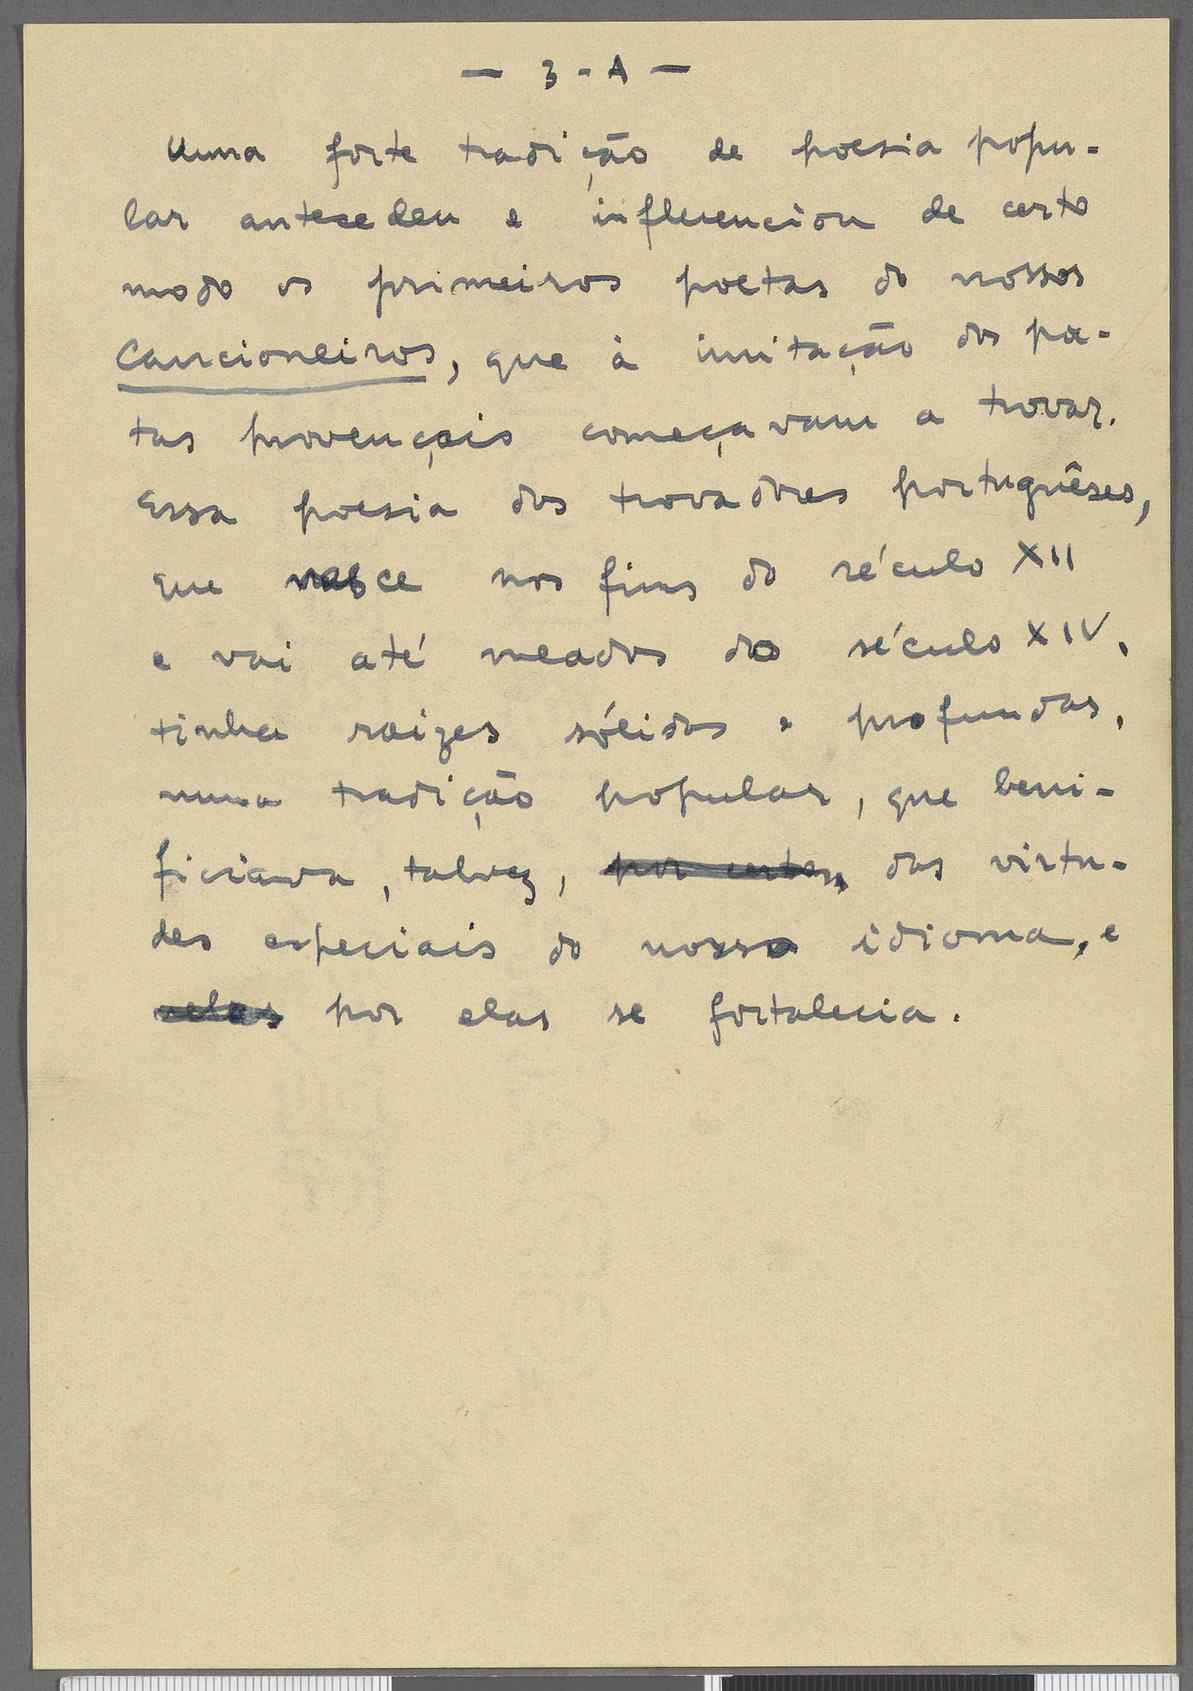 — 3 - A —
Uma forte tradição de poesia popu-
lar antecedeu e influenciou de certo
modo os primeiros poetas do nossos
Cancioneiros, que à imitação dos poe-
tas provençais começavam a trovar.
Essa poesia dos trovadores portuguêses,
que nasce nos fins do século XII
e vai até meados do século XIV,
tinha raizes sólidas e profundas,
numa tradição popular, que beni-
ficiava, talvez, das virtu-
des especiais do nosso idioma, e
por elas se fortalecia.